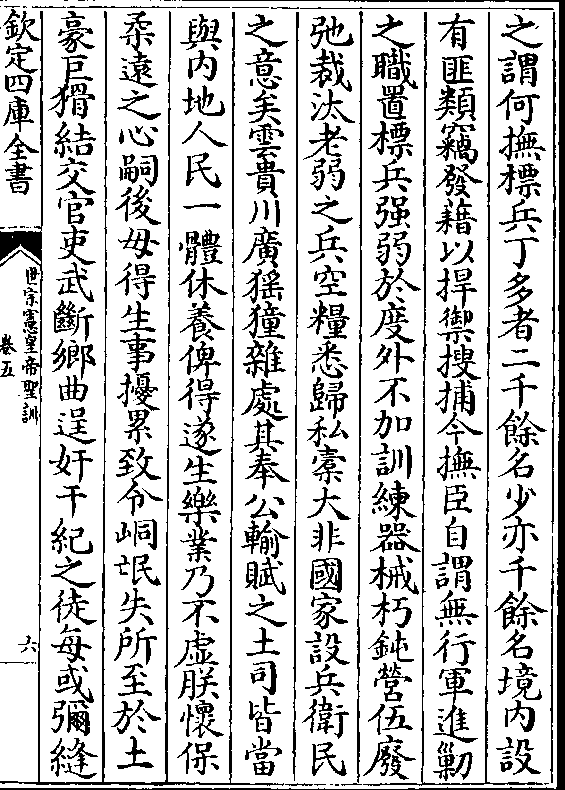 之謂何撫標兵丁多者二千餘名少亦千餘名境内設
有匪類竊發藉以捍禦搜捕今撫臣自謂無行軍進勦
之職置標兵强弱於度外不加訓練器械朽鈍營伍廢
弛裁汰老弱之兵空糧悉歸私橐大非國家設兵衛民
之意矣雲貴川廣猺獞雜處其奉公輸賦之土司皆當
與内地人民一體休養俾得遂生樂業乃不虚朕懷保
柔遠之心嗣後毋得生事擾累致令峒氓失所至於土
豪巨猾結交官吏武斷鄉曲逞奸干紀之徒每或彌縫
欽定四庫全書
世宗憲皇帝聖訓
卷五
六